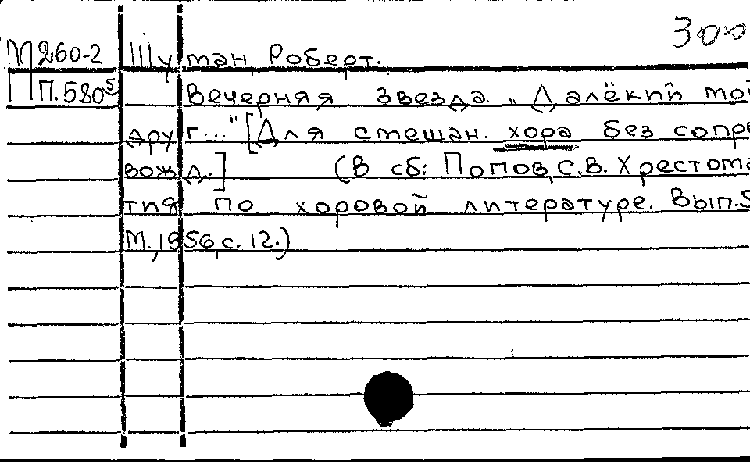 300
М260-2 Шуман Роберт.
П.580⁵ Вечерняя звезда. „Далёкий мой
друг..." [Для смешан. хора без сопро
вожд.] (В сб: Попов, С.В. Хрестома
тия по хоровой литературе. Вып.5
М., 1956, с. 12.)